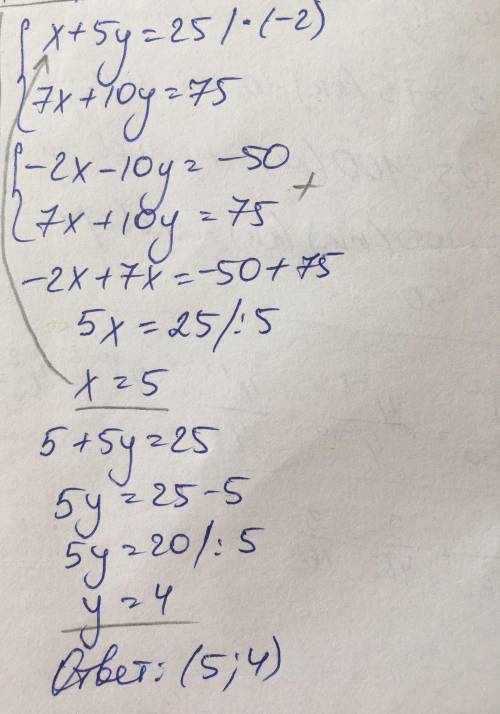 x+5y=25 /·(-2)
7x+10y=75
-2x-10y=-50
+
7x+10y=75
-2x+7x=-50+75
5x=25/:5
x=5
5+5y=25
5y=25-5
5y=20/:5
y=4
Ответ: (5;4)